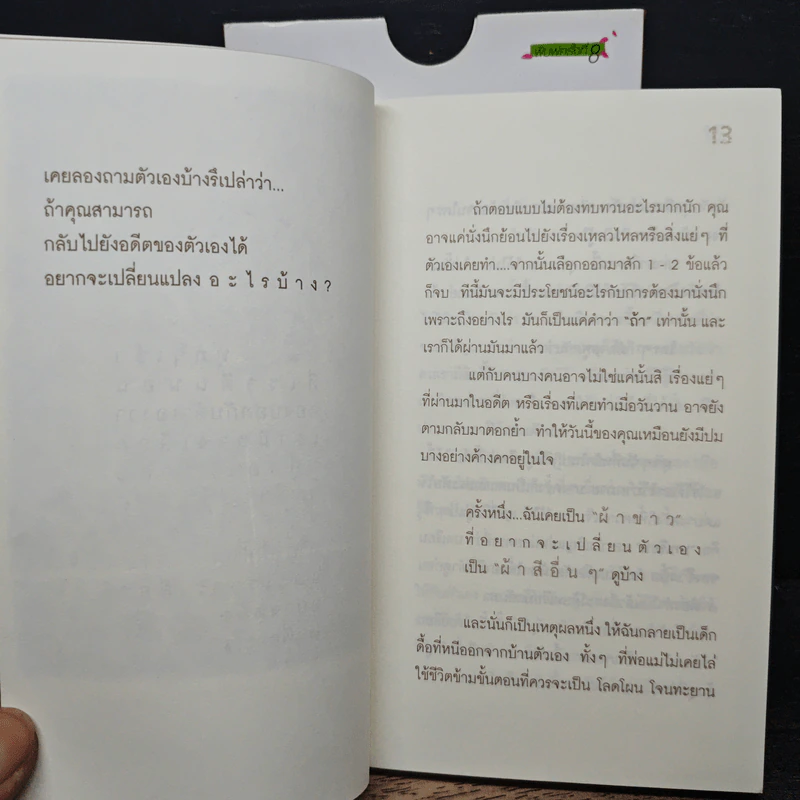 พิมพ์ครั้งที่ 8
เคยลองถามตัวเองบ้างรึเปล่าว่า...
ถ้าคุณสามารถ
กลับไปยังอดีตของตัวเองได้
อยากจะเปลี่ยนแปลง อ ะ ไ ร บ้ า ง ?
13
ถ้าตอบแบบไม่ต้องทบทวนอะไรมากนัก คุณ
อาจแค่นั่งนึกย้อนไปยังเรื่องเหลวไหลหรือสิ่งแย่ๆ ที่
ตัวเองเคยทำ....จากนั้นเลือกออกมาสัก 1 - 2 ข้อแล้ว
ก็จบ ทีนี้มันจะมีประโยชน์อะไรกับการต้องมานั่งนึก
เพราะถึงอย่างไร มันก็เป็นแค่คำว่า "ถ้า" เท่านั้น และ
เราก็ได้ผ่านมันมาแล้ว
แต่กับคนบางคนอาจไม่ใช่แค่นั้นสิ เรื่องแย่ๆ
ที่ผ่านมาในอดีต หรือเรื่องที่เคยทำเมื่อวันวาน อาจยัง
ตามกลับมาตอกย้ำ ทำให้วันนี้ของคุณเหมือนยังมีปม
บางอย่างค้างคาอยู่ในใจ
ครั้งหนึ่ง...ฉันเคยเป็น "ผ้ า ข า ว"
ที่ อ ย า ก จ ะ เ ป ลี่ ย น ตั ว เ อ ง
เป็น "ผ้ า สี อื่ น ๆ" ดูบ้าง
และนั่นก็เป็นเหตุผลหนึ่ง ให้ฉันกลายเป็นเด็ก
ดื้อที่หนีออกจากบ้านตัวเอง ทั้งๆ ที่พ่อแม่ไม่เคยไล่
ใช้ชีวิตข้ามขั้นตอนที่ควรจะเป็น โลดโผน โจนทะยาน